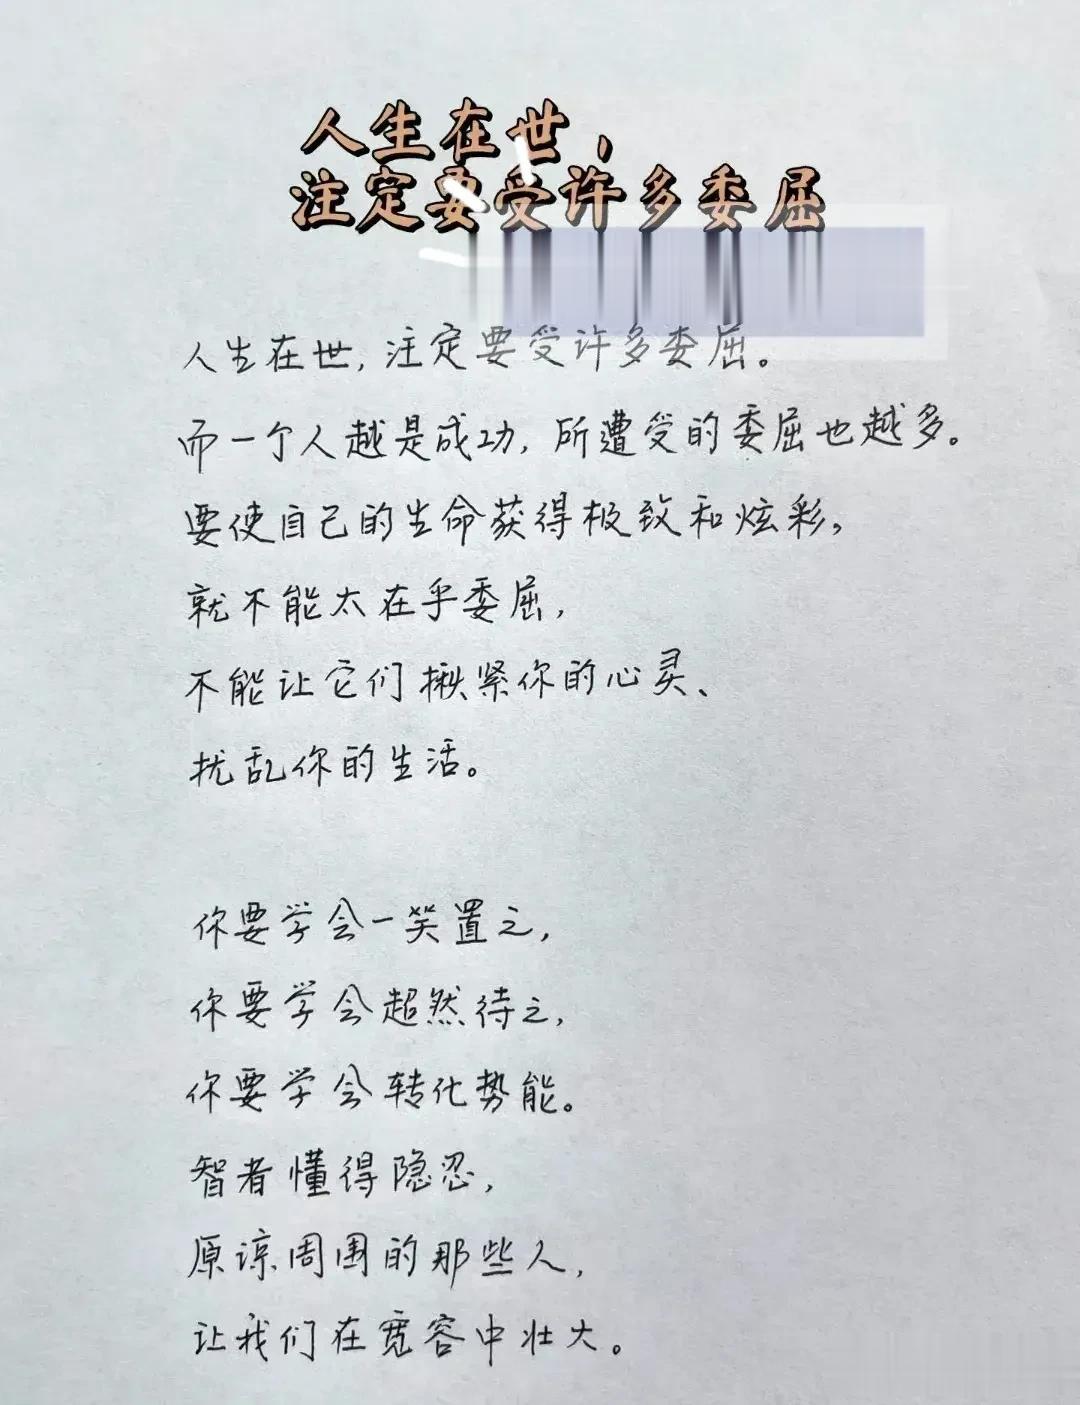 人生在世，
注定要受许多委屈
人生在世，注定要受许多委屈。
而一个人越是成功，所遭受的委屈也越多。
要使自己的生命获得极致和炫彩，
就不能太在乎委屈，
不能让它们揪紧你的心灵、
扰乱你的生活。
你要学会一笑置之，
你要学会超然待之，
你要学会转化势能。
智者懂得隐忍，
原谅周围的那些人，
让我们在宽容中壮大。